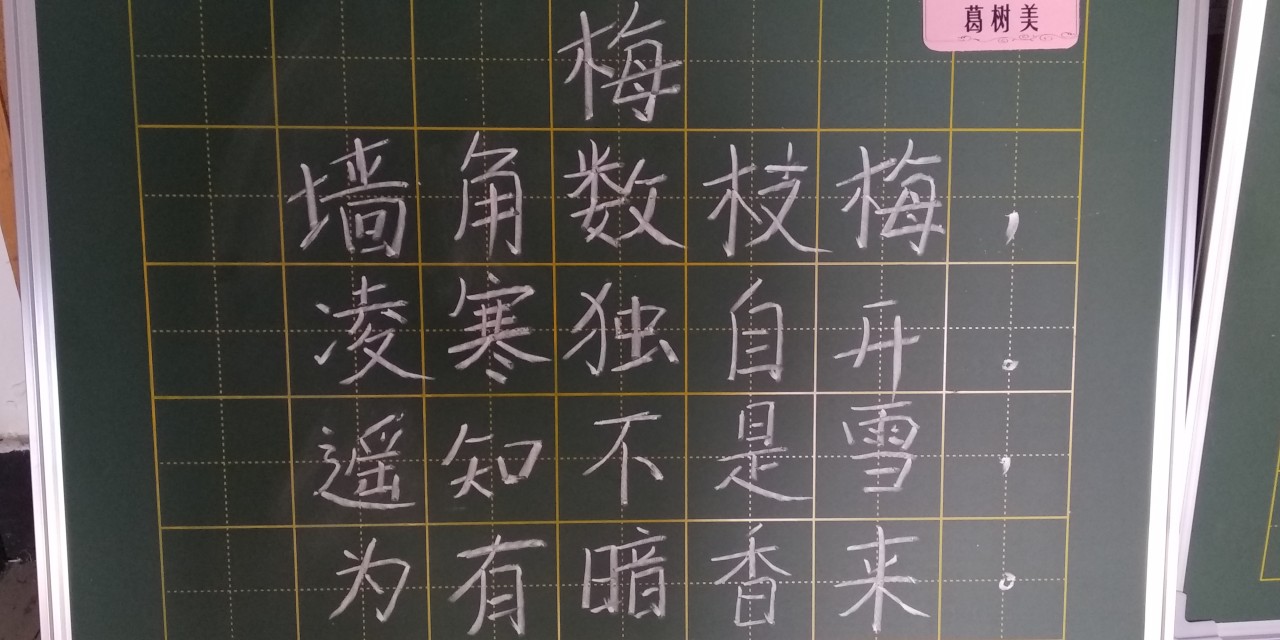 葛树美
梅
墙角数枝梅，
凌寒独自开。
遥知不是雪，
为有暗香来。